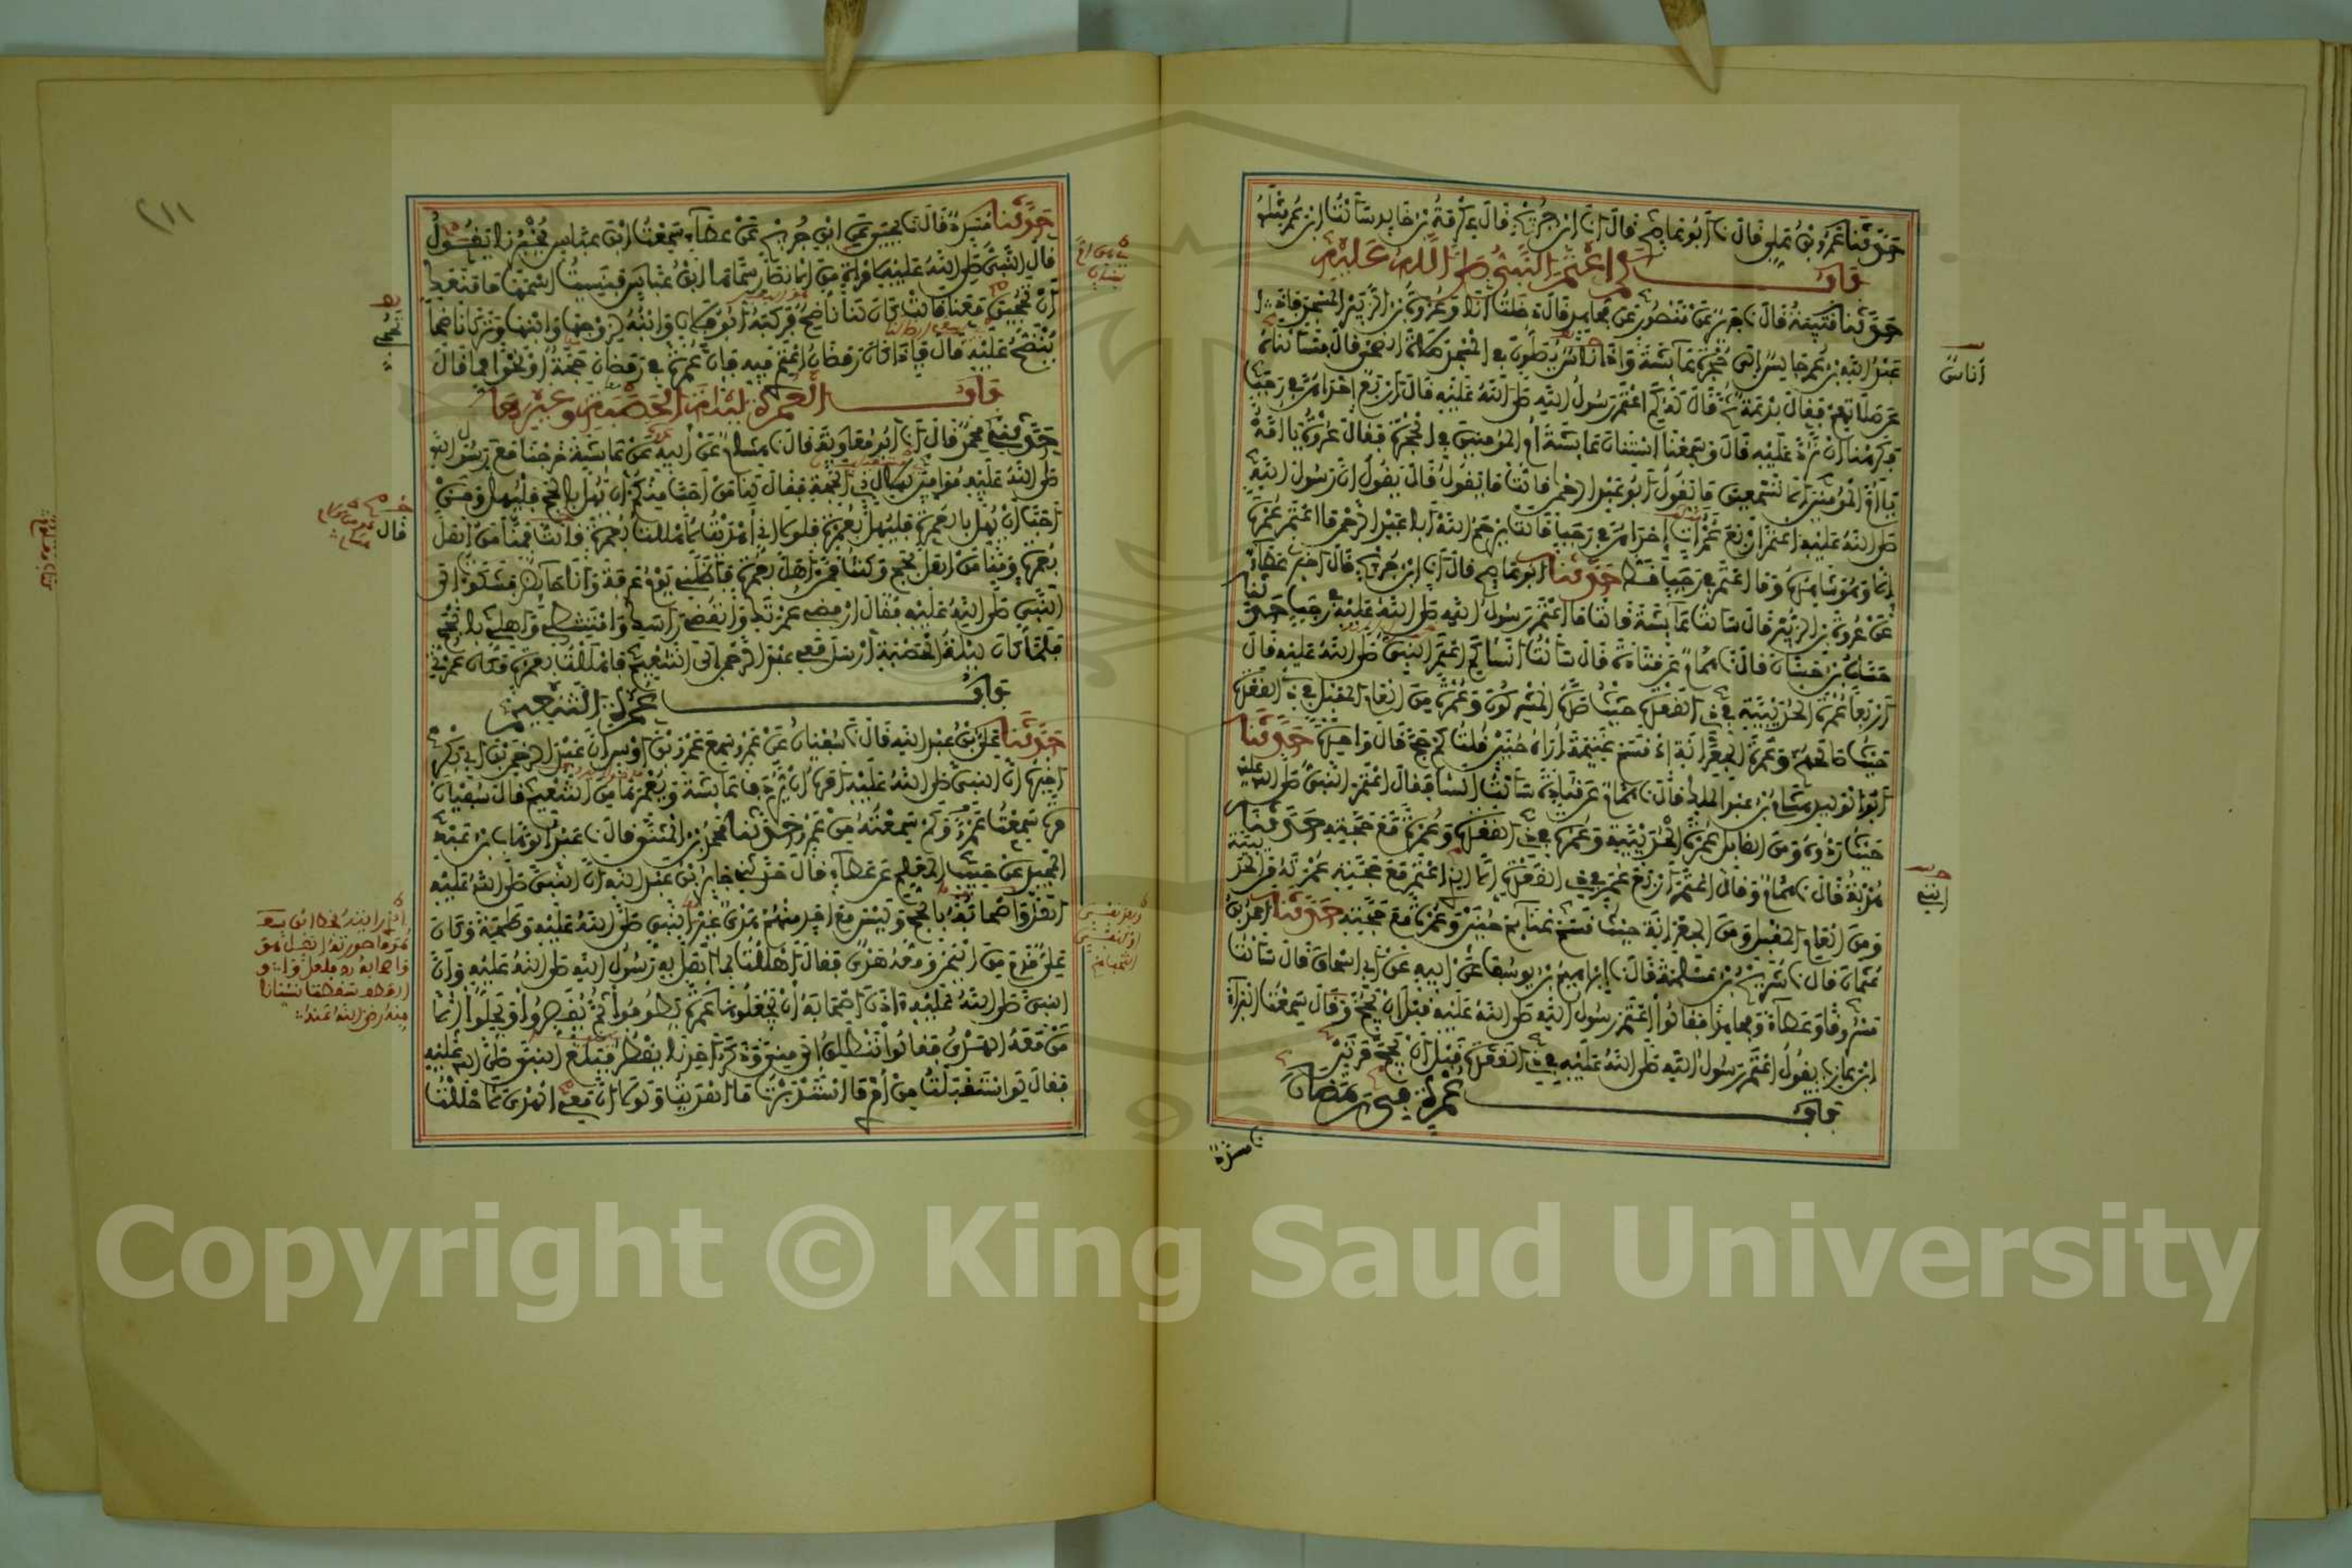 حَدَّثَنَا عَمْرُو بْنُ عَلِي قَالَ نَا أَبُو عَاصِمٍ قَالَ أَنَا ابْنُ جُرَيْجٍ قَالَ عِكْرِمَةُ بْنُ خَالِدٍ سَأَلْتُ ابْنَ عُمَرَ مِثْلَهُ
بَابٌ كَمِ اعْتَمَرَ النَّبِيُّ صَلَّى اللَّهُ عَلَيْهِ
حَدَّثَنَا قُتَيْبَةُ قَالَ نَا جَرِيرٌ عَنْ مَنْصُورٍ عَنْ مُجَاهِدٍ قَالَ دَخَلْتُ أَنَا وَعُرْوَةُ بْنُ الزُّبَيْرِ الْمَسْجِدَ فَإِذَا
عَبْدُ اللَّهِ بْنُ عُمَرَ جَالِسٌ إِلَى حُجْرَةِ عَائِشَةَ وَإِذَا أُنَاسٌ يُصَلُّونَ فِي الْمَسْجِدِ صَلَاةَ الضُّحَى قَالَ فَسَأَلْنَاهُ
عَنْ صَلَاتِهِمْ فَقَالَ بِدْعَةٌ ثُمَّ قَالَ لَهُ كَمِ اعْتَمَرَ رَسُولُ اللَّهِ صَلَّى اللَّهُ عَلَيْهِ قَالَ أَرْبَعٌ إِحْدَاهُنَّ فِي رَجَبٍ
فَكَرِهْنَا أَنْ نَرُدَّ عَلَيْهِ قَالَ وَسَمِعْنَا اسْتِنَانَ عَائِشَةَ أُمِّ الْمُؤْمِنِينَ فِي الْحُجْرَةِ فَقَالَ عُرْوَةُ يَا أُمَّهْ
يَا أُمَّ الْمُؤْمِنِينَ أَلَا تَسْمَعِينَ مَا يَقُولُ أَبُو عَبْدِ الرَّحْمَنِ قَالَتْ مَا يَقُولُ قَالَ يَقُولُ إِنَّ رَسُولَ اللَّهِ
صَلَّى اللَّهُ عَلَيْهِ اعْتَمَرَ أَرْبَعَ عُمَرَاتٍ إِحْدَاهُنَّ فِي رَجَبٍ قَالَتْ يَرْحَمُ اللَّهُ أَبَا عَبْدِ الرَّحْمَنِ مَا اعْتَمَرَ عُمْرَةً
إِلَّا وَهُوَ شَاهِدُهُ وَمَا اعْتَمَرَ فِي رَجَبٍ قَطُّ حَدَّثَنَا أَبُو عَاصِمٍ قَالَ أَنَا ابْنُ جُرَيْجٍ قَالَ أَخْبَرَنِي عَطَاءٌ
عَنْ عُرْوَةَ بْنِ الزُّبَيْرِ قَالَ سَأَلْتُ عَائِشَةَ قَالَتْ مَا اعْتَمَرَ رَسُولُ اللَّهِ صَلَّى اللَّهُ عَلَيْهِ فِي رَجَبٍ حَدَّثَنَا
حَسَّانُ بْنُ حَسَّانَ قَالَ نَا هَمَّامٌ عَنْ قَتَادَةَ قَالَ سَأَلْتُ أَنَسًا كَمِ اعْتَمَرَ النَّبِيُّ صَلَّى اللَّهُ عَلَيْهِ قَالَ
أَرْبَعًا عُمْرَةَ الْحُدَيْبِيَةِ فِي ذِي الْقَعْدَةِ حَيْثُ صَدَّهُ الْمُشْرِكُونَ وَعُمْرَةً مِنَ الْعَامِ الْمُقْبِلِ فِي ذِي الْقَعْدَةِ
حَيْثُ صَالَحَهُمْ وَعُمْرَةَ الْجِعْرَانَةِ إِذْ قَسَمَ غَنِيمَةَ أُرَاهُ حُنَيْنٍ قُلْتُ كَمْ حَجَّ قَالَ وَاحِدَةً حَدَّثَنَا
أَبُو الْوَلِيدِ هِشَامُ بْنُ عَبْدِ الْمَلِكِ قَالَ نَا هَمَّامٌ عَنْ قَتَادَةَ سَأَلْتُ أَنَسًا فَقَالَ اعْتَمَرَ النَّبِيُّ صَلَّى اللَّهُ عَلَيْهِ
حَيْثُ رَدُّوهُ وَمِنَ الْقَابِلِ عُمْرَةَ الْحُدَيْبِيَةِ وَعُمْرَةً فِي ذِي الْقَعْدَةِ وَعُمْرَةً مَعَ حَجَّتِهِ حَدَّثَنَا
هُدْبَةُ قَالَ نَا هَمَّامٌ وَقَالَ اعْتَمَرَ أَرْبَعَ عُمَرٍ فِي ذِي الْقَعْدَةِ إِلَّا الَّذِي اعْتَمَرَ مَعَ حَجَّتِهِ عُمْرَتَهُ مِنَ الْحُدَيْبِيَةِ
وَمِنَ الْعَامِ الْمُقْبِلِ وَمِنَ الْجِعْرَانَةِ حَيْثُ قَسَمَ غَنَائِمَ حُنَيْنٍ وَعُمْرَةً مَعَ حَجَّتِهِ حَدَّثَنَا أَحْمَدُ بْنُ
عُثْمَانَ قَالَ نَا شُرَيْحُ بْنُ مَسْلَمَةَ قَالَ نَا إِبْرَاهِيمُ بْنُ يُوسُفَ عَنْ أَبِيهِ عَنْ أَبِي إِسْحَاقَ قَالَ سَأَلْتُ
مَسْرُوقًا وَعَطَاءً وَمُجَاهِدًا فَقَالُوا اعْتَمَرَ رَسُولُ اللَّهِ صَلَّى اللَّهُ عَلَيْهِ قَبْلَ أَنْ يَحُجَّ وَقَالَ سَمِعْتُ الْبَرَاءَ
ابْنَ عَازِبٍ يَقُولُ اعْتَمَرَ رَسُولُ اللَّهِ صَلَّى اللَّهُ عَلَيْهِ فِي ذِي الْقَعْدَةِ قَبْلَ أَنْ يَحُجَّ مَرَّتَيْنِ
بَابُ عُمْرَةٍ فِي رَمَضَانَ
أناسٌ
حَدَّثَنَا مُسَدَّدٌ قَالَ نَا يَحْيَى عَنِ ابْنِ جُرَيْجٍ عَنْ عَطَاءٍ سَمِعْتُ ابْنَ عَبَّاسٍ يُخْبِرُنَا يَقُولُ
قَالَ النَّبِيُّ صَلَّى اللَّهُ عَلَيْهِ لِامْرَأَةٍ مِنَ الْأَنْصَارِ سَمَّاهَا ابْنُ عَبَّاسٍ فَنَسِيتُ اسْمَهَا مَا مَنَعَكِ
أَنْ تَحُجِّينَ مَعَنَا قَالَتْ كَانَ لَنَا نَاضِحٌ فَرَكِبَهُ أَبُو فُلَانٍ وَابْنُهُ لِزَوْجِهَا وَابْنِهَا وَتَرَكَ نَاضِحًا
نَنْضَحُ عَلَيْهِ قَالَ فَإِذَا كَانَ رَمَضَانُ اعْتَمِرِي فِيهِ فَإِنَّ عُمْرَةً فِي رَمَضَانَ حَجَّةٌ أَوْ نَحْوًا مِمَّا قَالَ
بَابُ الْعُمْرَةِ لَيْلَةَ الْحَصْبَةِ وَغَيْرِهَا
حَدَّثَنِي مُحَمَّدٌ قَالَ أَنَا أَبُو مُعَاوِيَةَ قَالَ نَا هِشَامٌ عَنْ أَبِيهِ عَنْ عَائِشَةَ خَرَجْنَا مَعَ رَسُولِ اللَّهِ
صَلَّى اللَّهُ عَلَيْهِ مُوَافِينَ لِهِلَالِ ذِي الْحِجَّةِ فَقَالَ لَنَا مَنْ أَحَبَّ مِنْكُمْ أَنْ يُهِلَّ بِالْحَجِّ فَلْيُهِلَّ وَمَنْ
أَحَبَّ أَنْ يُهِلَّ بِعُمْرَةٍ فَلْيُهِلَّ بِعُمْرَةٍ فَلَوْلَا أَنِّي أَهْدَيْتُ لَأَهْلَلْتُ بِعُمْرَةٍ قَالَتْ فَمِنَّا مَنْ أَهَلَّ
بِعُمْرَةٍ وَمِنَّا مَنْ أَهَلَّ بِحَجٍّ وَكُنْتُ مِمَّنْ أَهَلَّ بِعُمْرَةٍ فَأَظَلَّنِي يَوْمُ عَرَفَةَ وَأَنَا حَائِضٌ فَشَكَوْتُ إِلَى
النَّبِيِّ صَلَّى اللَّهُ عَلَيْهِ فَقَالَ ارْفُضِي عُمْرَتَكِ وَانْقُضِي رَأْسَكِ وَامْتَشِطِي وَأَهِلِّي بِالْحَجِّ
فَلَمَّا كَانَ لَيْلَةُ الْحَصْبَةِ أَرْسَلَ مَعِي عَبْدَ الرَّحْمَنِ إِلَى التَّنْعِيمِ فَأَهْلَلْتُ بِعُمْرَةٍ مَكَانَ عُمْرَتِي
بَابُ عُمْرَةِ التَّنْعِيمِ
حَدَّثَنَا عَلِيُّ بْنُ عَبْدِ اللَّهِ قَالَ نَا سُفْيَانُ عَنْ عَمْرٍو سَمِعَ عَمْرَو بْنَ أَوْسٍ أَنَّ عَبْدَ الرَّحْمَنِ بْنَ أَبِي بَكْرٍ
أَخْبَرَهُ أَنَّ النَّبِيَّ صَلَّى اللَّهُ عَلَيْهِ أَمَرَهُ أَنْ يُرْدِفَ عَائِشَةَ وَيُعْمِرَهَا مِنَ التَّنْعِيمِ قَالَ سُفْيَانُ
مَرَّةً سَمِعْتُ عَمْرًا وَكَمْ سَمِعْتُهُ مِنْ عَمْرٍو حَدَّثَنَا مُحَمَّدُ بْنُ الْمُثَنَّى قَالَ نَا عَبْدُ الْوَهَّابِ بْنُ عَبْدِ
الْمَجِيدِ عَنْ حَبِيبٍ الْمُعَلِّمِ عَنْ عَطَاءٍ قَالَ حَدَّثَنِي جَابِرُ بْنُ عَبْدِ اللَّهِ أَنَّ النَّبِيَّ صَلَّى اللَّهُ عَلَيْهِ
أَهَلَّ وَأَصْحَابُهُ بِالْحَجِّ وَلَيْسَ مَعَ أَحَدٍ مِنْهُمْ هَدْيٌ غَيْرَ النَّبِيِّ صَلَّى اللَّهُ عَلَيْهِ وَطَلْحَةَ وَكَانَ
عَلِيٌّ قَدِمَ مِنَ الْيَمَنِ وَمَعَهُ هَدْيٌ فَقَالَ أَهْلَلْتُ بِمَا أَهَلَّ بِهِ رَسُولُ اللَّهِ صَلَّى اللَّهُ عَلَيْهِ وَأَنَّ
النَّبِيَّ صَلَّى اللَّهُ عَلَيْهِ أَذِنَ لِأَصْحَابِهِ أَنْ يَجْعَلُوهَا عُمْرَةً يَطُوفُوا ثُمَّ يُقَصِّرُوا وَيَحِلُّوا إِلَّا
مَنْ مَعَهُ الْهَدْيُ فَقَالُوا نَنْطَلِقُ إِلَى مِنًى وَذَكَرُ أَحَدِنَا يَقْطُرُ فَبَلَغَ النَّبِيَّ صَلَّى اللَّهُ عَلَيْهِ
فَقَالَ لَوِ اسْتَقْبَلْتُ مِنْ أَمْرِي مَا اسْتَدْبَرْتُ مَا أَهْدَيْتُ وَلَوْلَا أَنَّ مَعِي الْهَدْيَ لَأَحْلَلْتُ
٢١١
قال
Copyright © King Saud University